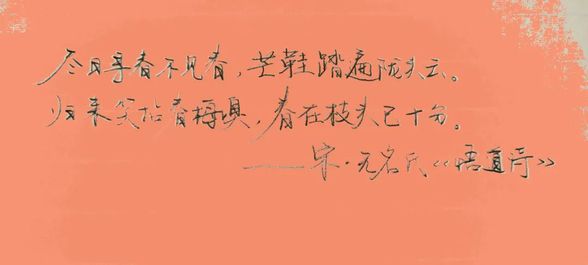 尽日寻春不见春,芒鞋踏遍陇头云。
归来笑拈春梅嗅,春在枝头已十分。
——宋·无名氏《悟道诗》